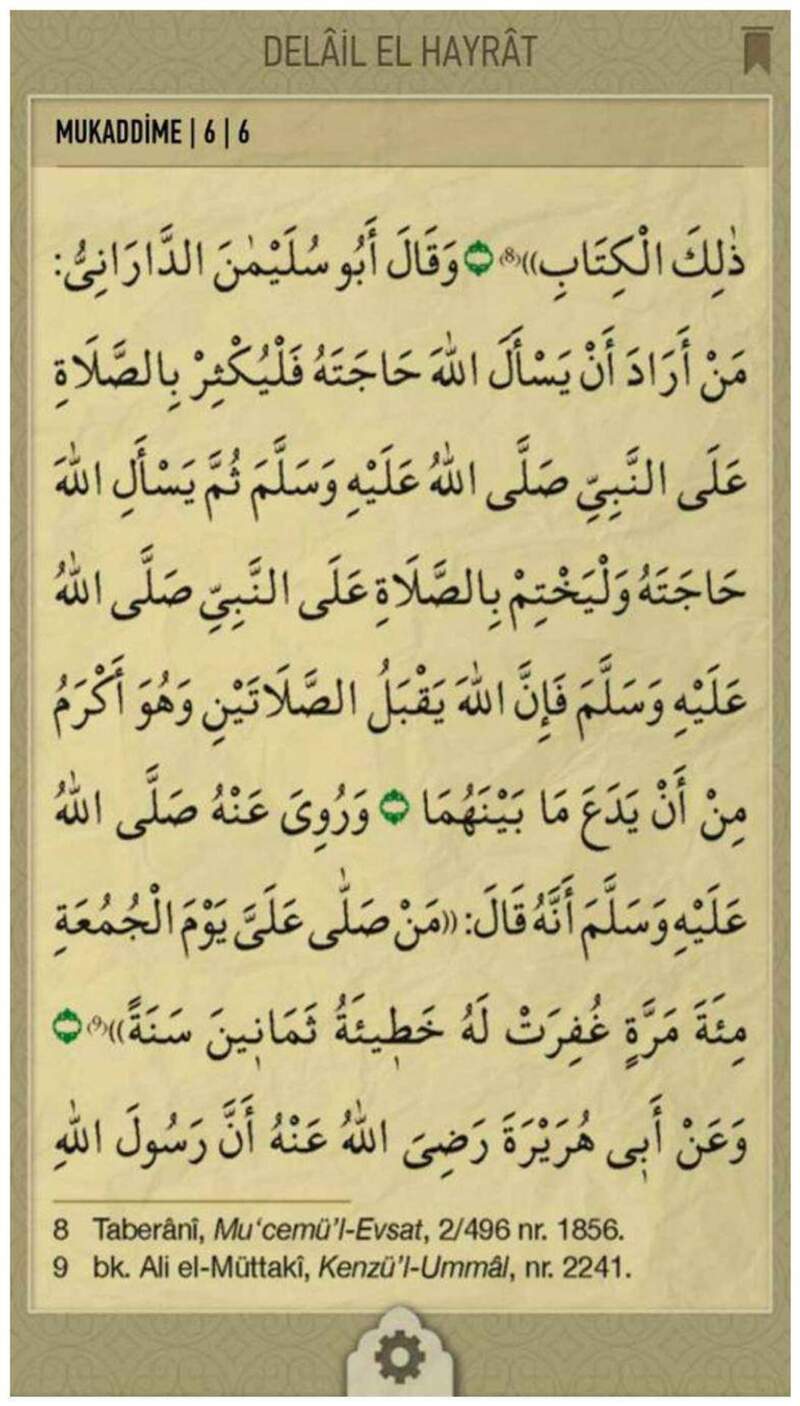 DELÂİL EL HAYRÂT
MUKADDİME | 6 | 6
ذٰلِكَ الْكِتَابِ))⁽⁸⁾ وَقَالَ أَبُو سُلَيْمٰنَ الدَّارَانِىُّ:
مَنْ أَرَادَ أَنْ يَسْأَلَ اللهَ حَاجَتَهُ فَلْيُكْثِرْ بِالصَّلَاةِ
عَلَى النَّبِيِّ صَلَّى اللهُ عَلَيْهِ وَسَلَّمَ ثُمَّ يَسْأَلِ اللهَ
حَاجَتَهُ وَلْيَخْتِمْ بِالصَّلَاةِ عَلَى النَّبِيِّ صَلَّى اللهُ
عَلَيْهِ وَسَلَّمَ فَإِنَّ اللهَ يَقْبَلُ الصَّلَاتَيْنِ وَهُوَ أَكْرَمُ
مِنْ أَنْ يَدَعَ مَا بَيْنَهُمَا وَرُوِىَ عَنْهُ صَلَّى اللهُ
عَلَيْهِ وَسَلَّمَ أَنَّهُ قَالَ: ((مَنْ صَلّٰى عَلَىَّ يَوْمَ الْجُمُعَةِ
مِئَةَ مَرَّةٍ غُفِرَتْ لَهُ خَطِيئَةُ ثَمَانِينَ سَنَةً))⁽⁹⁾
وَعَنْ أَبِى هُرَيْرَةَ رَضِىَ اللهُ عَنْهُ أَنَّ رَسُولَ اللهِ
8 Taberânî, Mu‘cemü’l-Evsat, 2/496 nr. 1856.
9 bk. Ali el-Müttakî, Kenzü’l-Ummâl, nr. 2241.